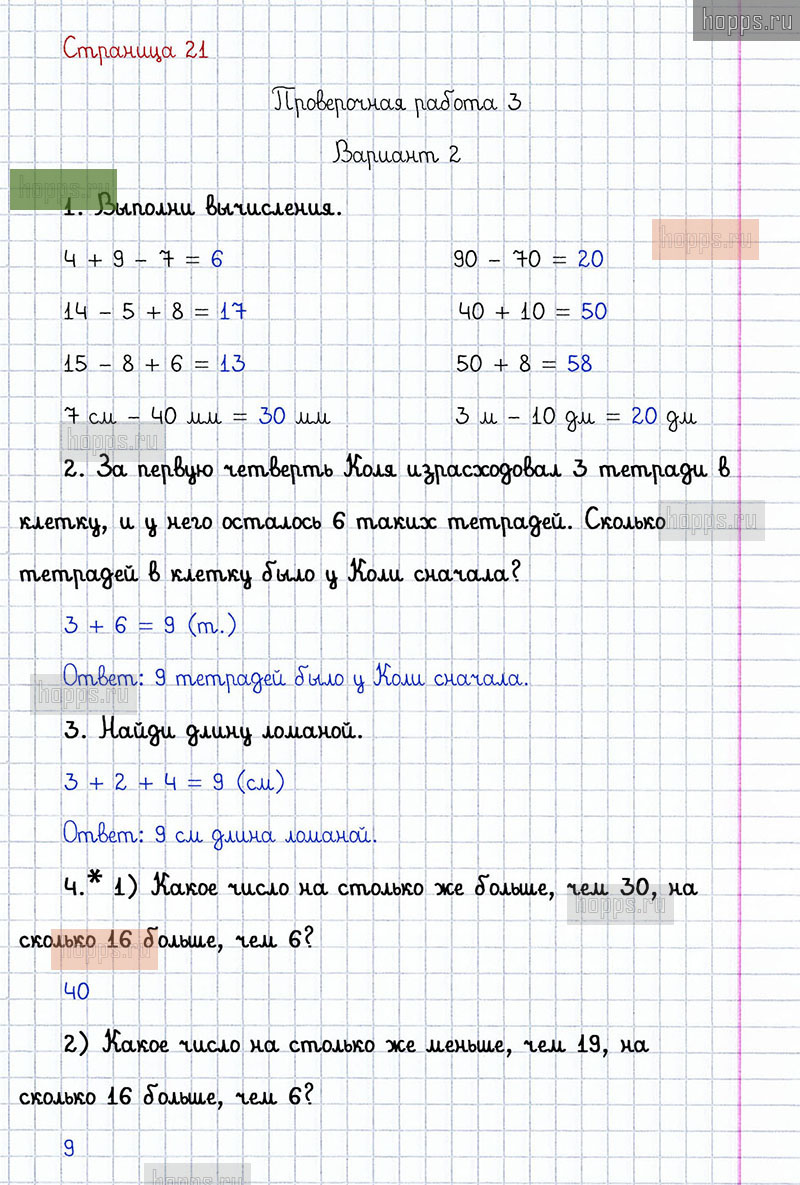 hopps.ru
Страница 21
Проверочная работа 3
Вариант 2
hopps.ru
1. Выполни вычисления.
hopps.ru
4 + 9 - 7 = 6 90 - 70 = 20
14 - 5 + 8 = 17 40 + 10 = 50
15 - 8 + 6 = 13 50 + 8 = 58
7 см - 40 мм = 30 мм 3 м - 10 дм = 20 дм
hopps.ru
2. За первую четверть Коля израсходовал 3 тетради в
клетку, и у него осталось 6 таких тетрадей. Сколько
hopps.ru
тетрадей в клетку было у Коли сначала?
3 + 6 = 9 (т.)
Ответ: 9 тетрадей было у Коли сначала.
hopps.ru
3. Найди длину ломаной.
3 + 2 + 4 = 9 (см)
Ответ: 9 см длина ломаной.
4.* 1) Какое число на столько же больше, чем 30, на
hopps.ru
сколько 16 больше, чем 6?
hopps.ru
40
2) Какое число на столько же меньше, чем 19, на
сколько 16 больше, чем 6?
9
hopps.ru